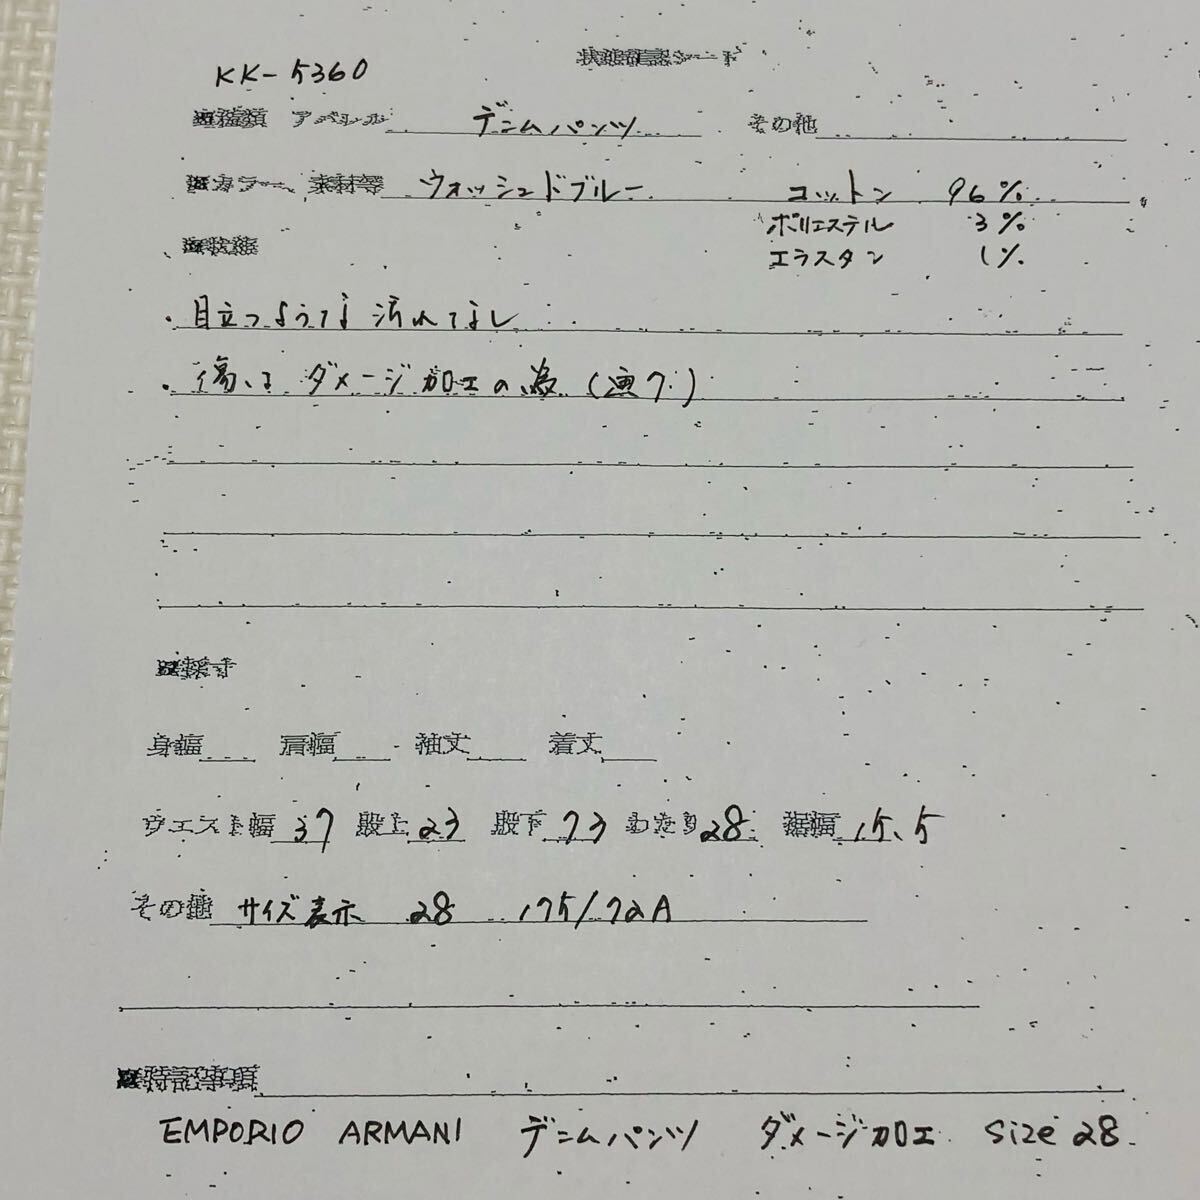 状態確認シート
KK-5360
※種類 アパレル デニムパンツ その他
※カラー、素材等 ウォッシュドブルー コットン 96%
ポリエステル 3%
エラスタン 1%
※状態
・目立つような汚れてなし
・傷は ダメージ加工の為
※採寸
身幅 肩幅 袖丈 着丈
ウエスト幅 37 股上 23 股下 73 わたり 28 裾幅 15.5
その他 サイズ表示 28 175/72A
※特記事項
EMPORIO ARMANI デニムパンツ ダメージ加工 size 28